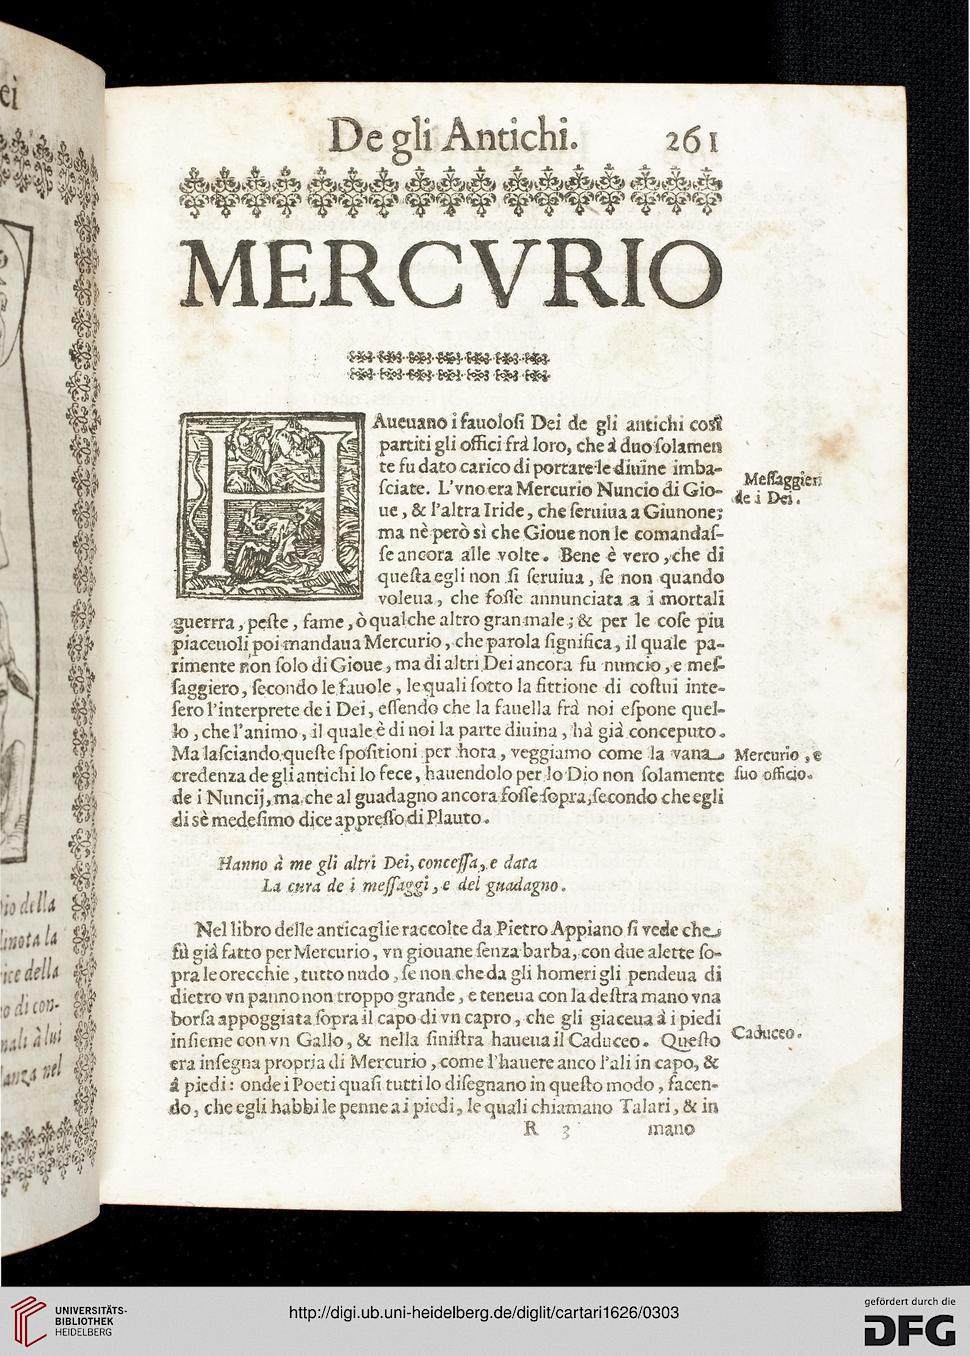 De gli Antichi. 261
MERCVRIO
HAueuano i fauoloſi Dei de gli antichi coſi
partiti gli offici frà loro, che à duo ſolamen
te fu dato carico di portare le diuine imba-
ſciate. L'vno era Mercurio Nuncio di Gio-
ue, & l'altra Iride, che ſeruiua a Giunone;
ma nè però sì che Gioue non le comandaſ-
ſe ancora alle volte. Bene è vero, che di
queſta egli non ſi ſeruiua, ſe non quando
voleua, che foſſe annunciata a i mortali
guerrra, peſte, fame, ò qualche altro gran male; & per le coſe piu
piaceuoli poi mandaua Mercurio, che parola ſignifica, il quale pa-
rimente non ſolo di Gioue, ma di altri Dei ancora fu nuncio, e meſ-
ſaggiero, ſecondo le fauole, le quali ſotto la fittione di coſtui inte-
ſero l'interprete de i Dei, eſſendo che la fauella frà noi eſpone quel-
lo, che l'animo, il quale è di noi la parte diuina, hà già conceputo.
Ma laſciando queſte ſpoſitioni per hora, veggiamo come la vana
credenza de gli antichi lo fece, hauendolo per lo Dio non ſolamente
de i Nuncij, ma che al guadagno ancora foſſe ſopra, ſecondo che egli
di sè medeſimo dice appreſſo di Plauto.
Meſſaggieri
de i Dei.
Mercurio, e
ſuo officio.
Hanno à me gli altri Dei, conceſſa, e data
La cura de i meſſaggi, e del guadagno.
Nel libro delle anticaglie raccolte da Pietro Appiano ſi vede che
fù già fatto per Mercurio, vn giouane ſenza barba, con due alette ſo-
pra le orecchie, tutto nudo, ſe non che da gli homeri gli pendeua di
dietro vn panno non troppo grande, e teneua con la deſtra mano vna
borſa appoggiata ſopra il capo di vn capro, che gli giaceua à i piedi
inſieme con vn Gallo, & nella ſiniſtra haueua il Caduceo. Queſto
era inſegna propria di Mercurio, come l'hauere anco l'ali in capo, &
à piedi: onde i Poeti quaſi tutti lo diſegnano in queſto modo, facen-
do, che egli habbi le penne a i piedi, le quali chiamano Talari, & in
Caduceo.
R 3 mano
ei
io della
dinota la
rice della
o di con-
nali à lui
lanza nel
UNIVERSITÄTS-
BIBLIOTHEK
HEIDELBERG
http://digi.ub.uni-heidelberg.de/diglit/cartari1626/0303
gefördert durch die
DFG